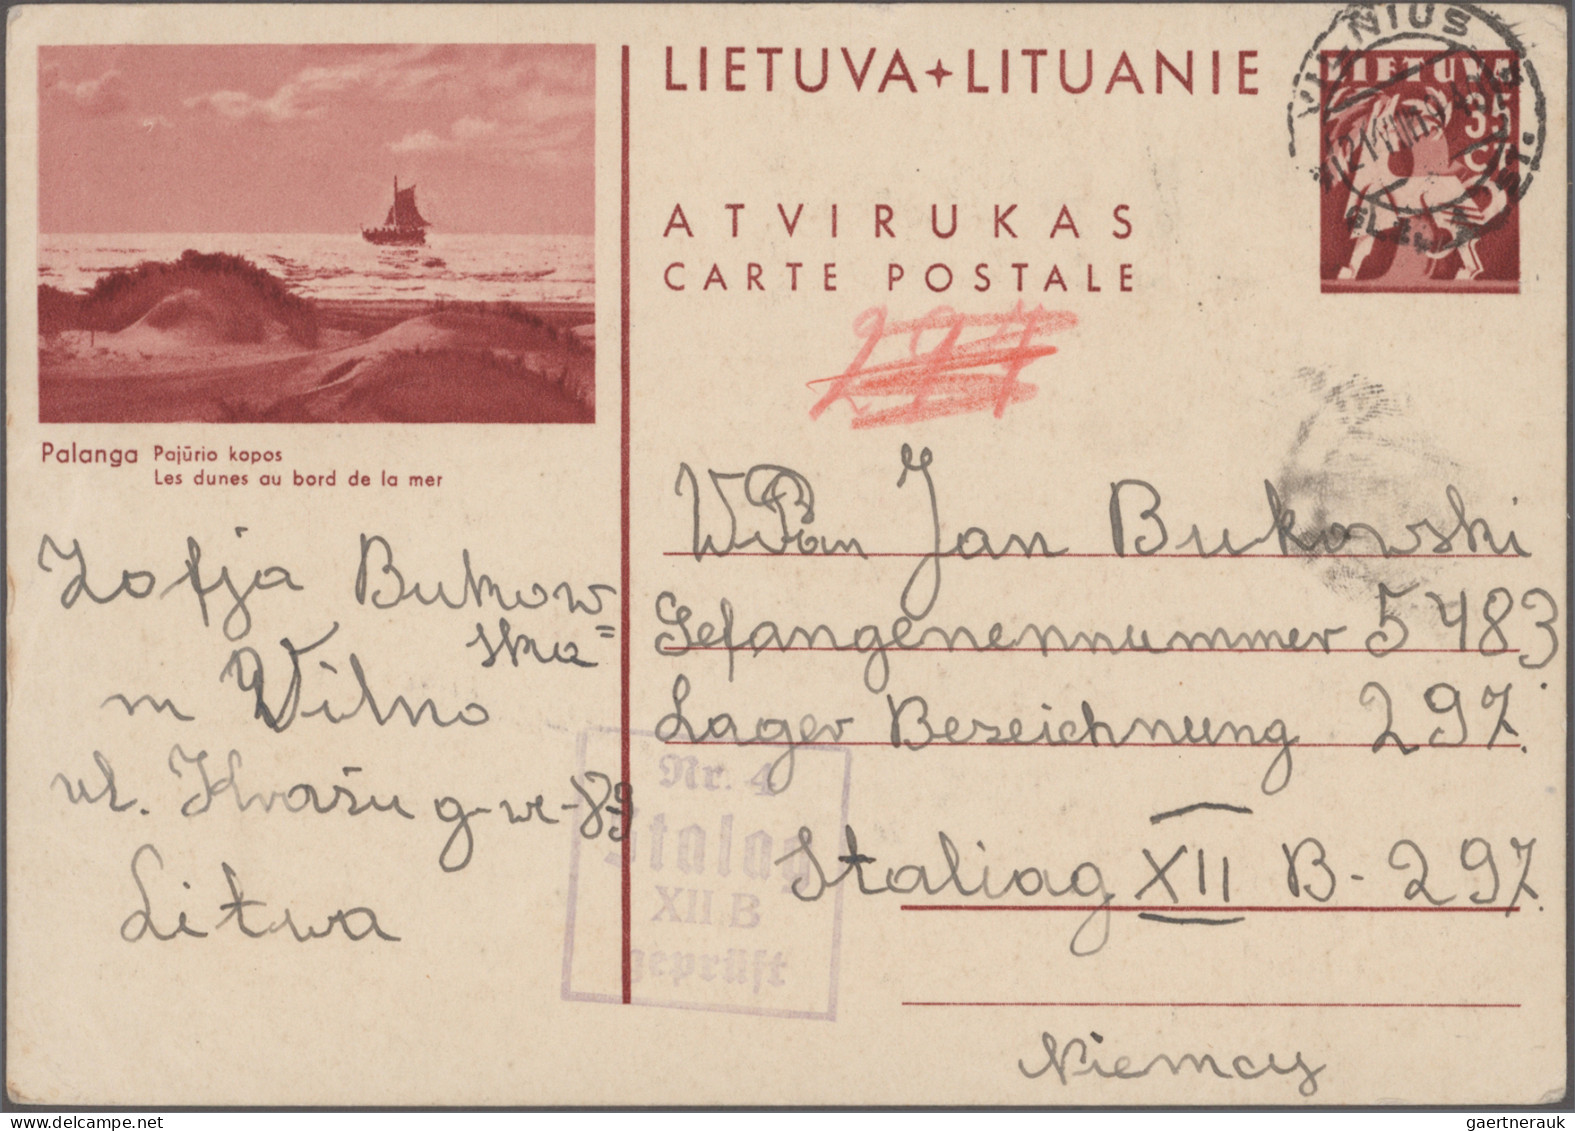 LIETUVA + LITUANIE
VILNIUS
LIETUVA
35
C
ATVIRUKAS
CARTE POSTALE
297
Palanga Pajūrio kopos
Les dunes au bord de la mer
WPan Jan Bukowski
Gefangenennummer 5483
Lager Bezeichnung 297.
Staliag XII B-297.
Niemcy
Zofja Bukow
ska=
m Wilno
ul.
Litwa
Nr. 4
Stalag
XII B
geprüft
gaertnerauk